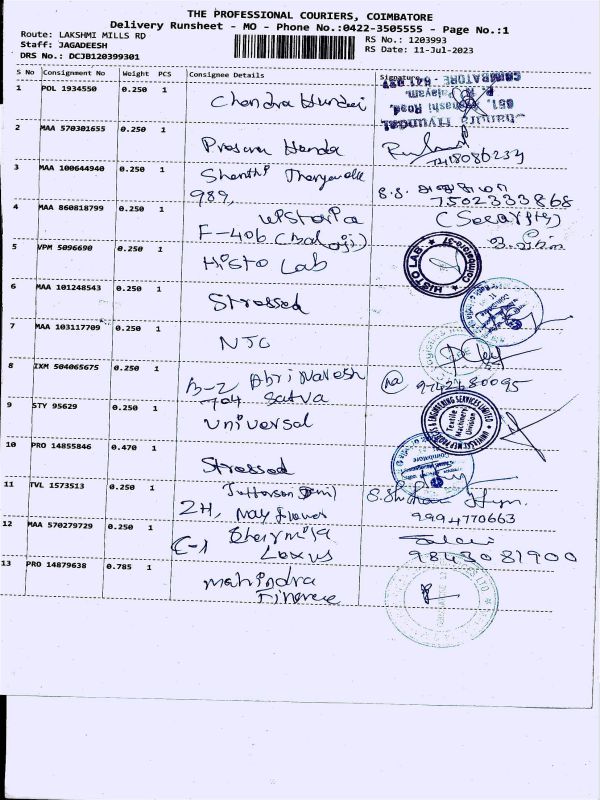 THE PROFESSIONAL COURIERS, COIMBATORE
Delivery Runsheet - MO - Phone No.:0422-3505555 - Page No.:1
Route: LAKSHMI MILLS RD
RS No.: 1203993
Staff: JAGADEESH
RS Date: 11-Jul-2023
DRS No.: DCJB120399301
S No Consignment No Weight PCS Consignee Details Signature
1 POL 1934550 0.250 1 Chandra Hundai
2 MAA 570301655 0.250 1 Honda
3 MAA 100644940 0.250 1 Shanthi
989, 7502333868
4 MAA 860818799 0.250 1 (Security)
F-406 (Balaji)
5 VPM 5096690 0.250 1 Histo Lab HISTO LAB
6 MAA 101248543 0.250 1 Stressed
7 MAA 103117709 0.250 1 NTC
8 IXM 504065675 0.250 1 B-2 Abri Naresh
704 Satva
9 STY 95629 0.250 1 Universal Textile Machinery Division
10 PRO 14855846 0.470 1 Stressed
11 TVL 1573513 0.250 1
2H, May flower 9994770663
12 MAA 570279729 0.250 1
C-1 Lexus 9843081900
13 PRO 14879638 0.785 1 Mahindra
Finance